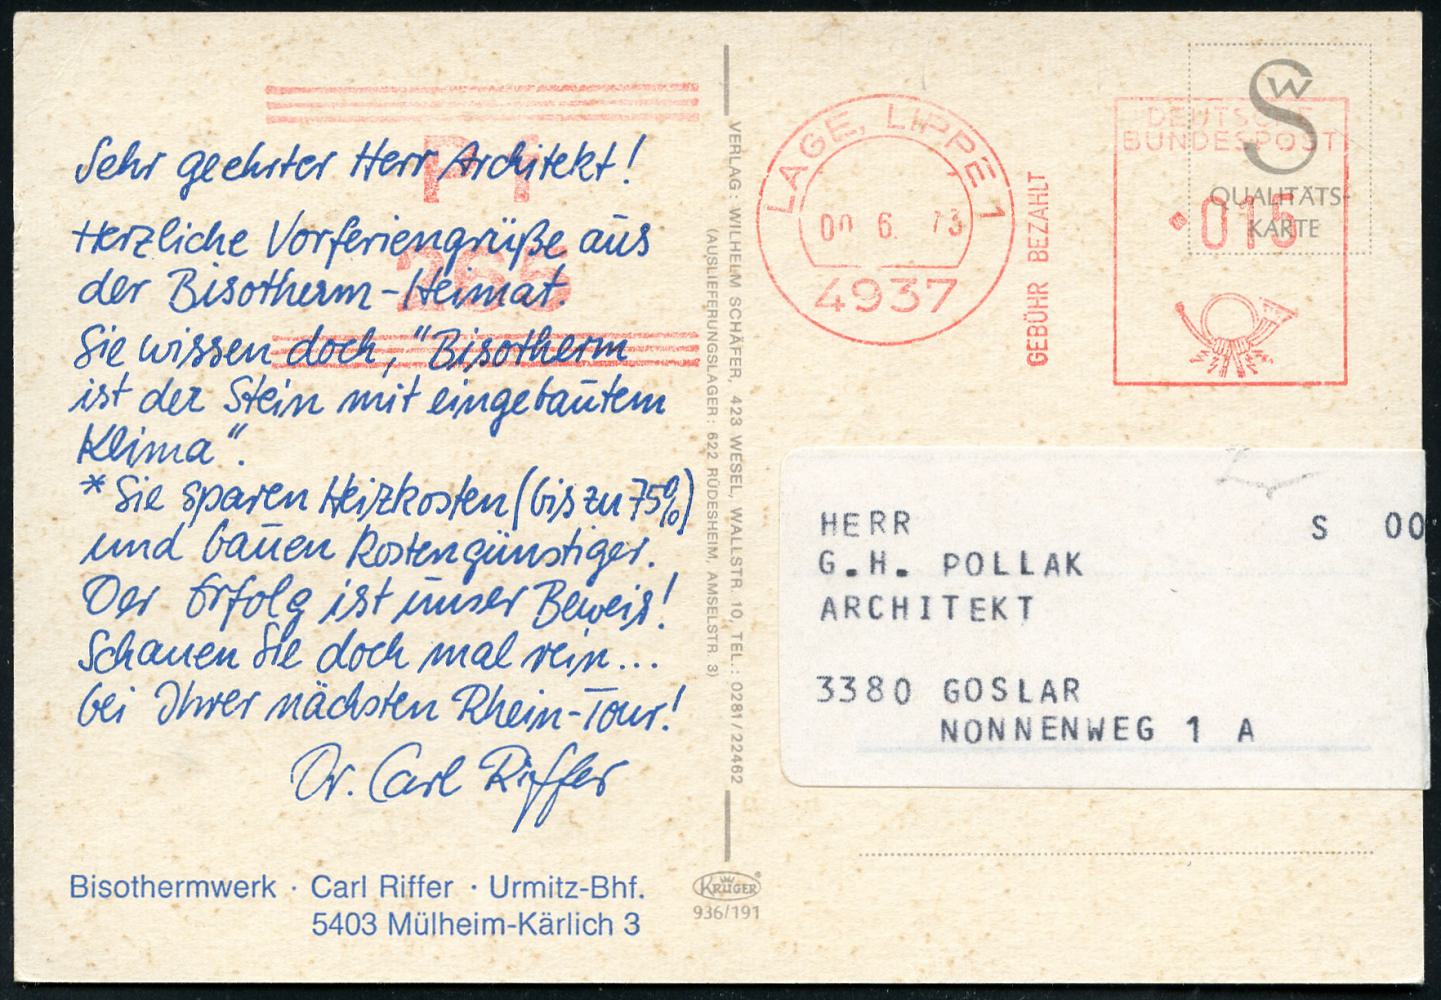 Sehr geehrter Herr Architekt!
Herzliche Vorferiengrüße aus
der Bisotherm-Heimat.
Sie wissen doch, "Bisotherm
ist der Stein mit eingebautem
Klima".
* Sie sparen Heizkosten (bis zu 75%)
und bauen kostengünstiger.
Der Erfolg ist unser Beweis!
Schauen Sie doch mal rein...
bei Ihrer nächsten Rhein-Tour!
Dr. Carl Riffer
Bisothermwerk · Carl Riffer · Urmitz-Bhf.
5403 Mülheim-Kärlich 3
265
VERLAG: WILHELM SCHÄFER, 423 WESEL, WALLSTR. 10, TEL.: 0281/22462
(AUSLIEFERUNGSLAGER: 622 RÜDESHEIM, AMSELSTR. 3)
KRÜGER
936/191
LAGE, LIPPE 1
00 6. 73
4937
GEBÜHR BEZAHLT
DEUTSCHE
BUNDESPOST
015
SW
QUALITÄTS-
KARTE
HERR S 00
G.H. POLLAK
ARCHITEKT
3380 GOSLAR
NONNENWEG 1 A